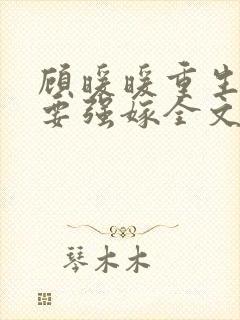 顾暖暖重生
要强嫁全文
琴木木